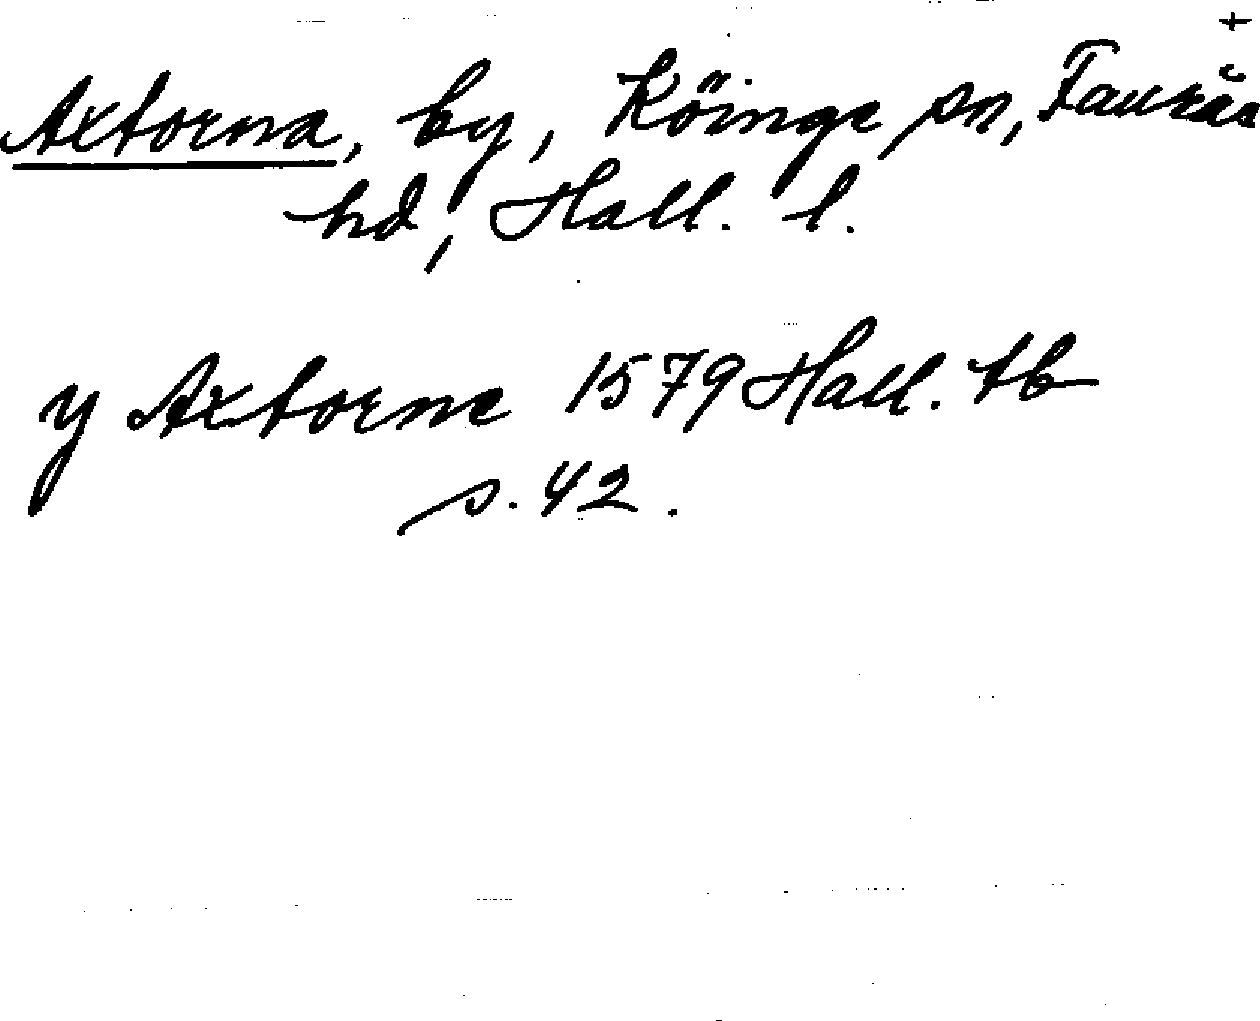 +
Axtorna, by, Köinge sn, Faurås
hd, Hall. l.
y Axtorne 1579 Hall. tb
s. 42.